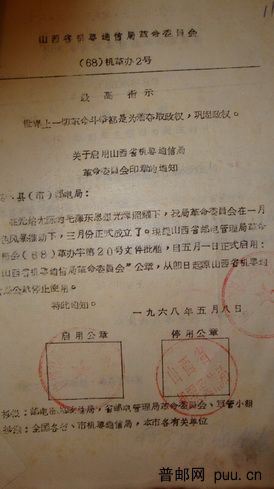 山西省机要通信局革命委员会
(68)机革办2号
最高指示
世界上一切革命斗争都是为着夺取政权，巩固政权。
关于启用山西省机要通信局
革命委员会印章的通知
县(市)邮电局：
在光焰无际的毛泽东思想光辉照耀下，我局革命委员会在一月
风暴推动下，三月份正式成立了。现经山西省邮电管理局革命
委会(68)革办字第20号文件批准，自五月一日正式启用：
山西省机要通信局革命委员会"公章，从即日起原山西省机要通
公章停止使用。
特此通知。
一九六八年五月八日
启用公章
停用公章
山西省
抄报：邮电部机要局，省邮电管理局革命委员会、军管小组
抄送：全国各省、市机要通信局，本市各有关单位
普邮网 puu.cn